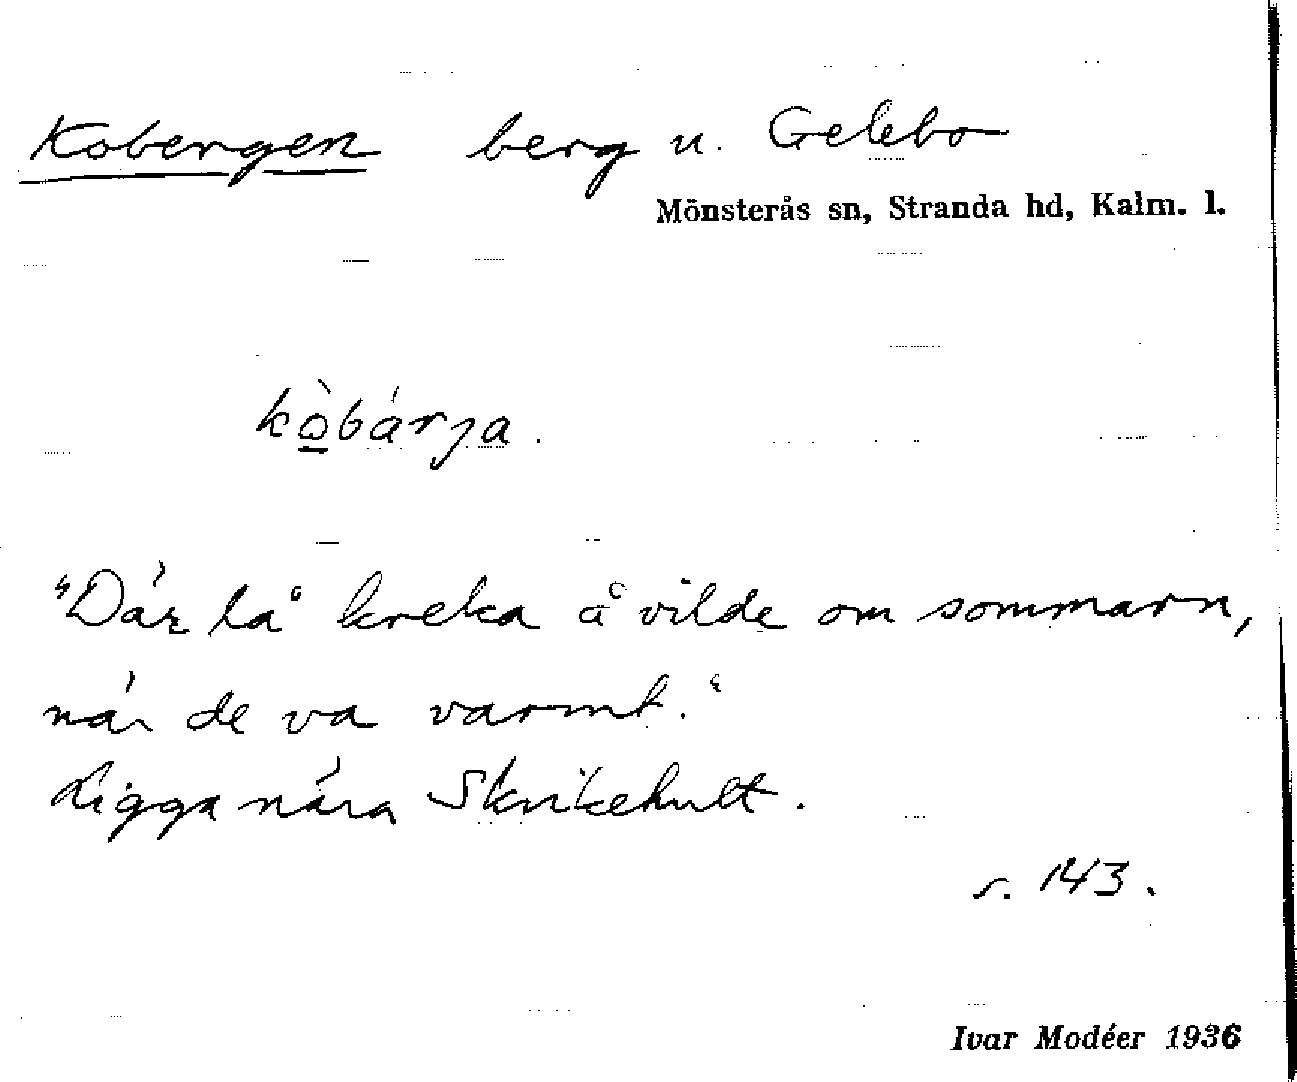 Kobergen berg u. Gelebo
Mönsterås sn, Stranda hd, Kalm. l.
kò̱bárja.
"Där la° kreka å vilde om sommarn,
när de va varmt."
Ligga nära Skrikehult.
s. 143.
Ivar Modéer 1936